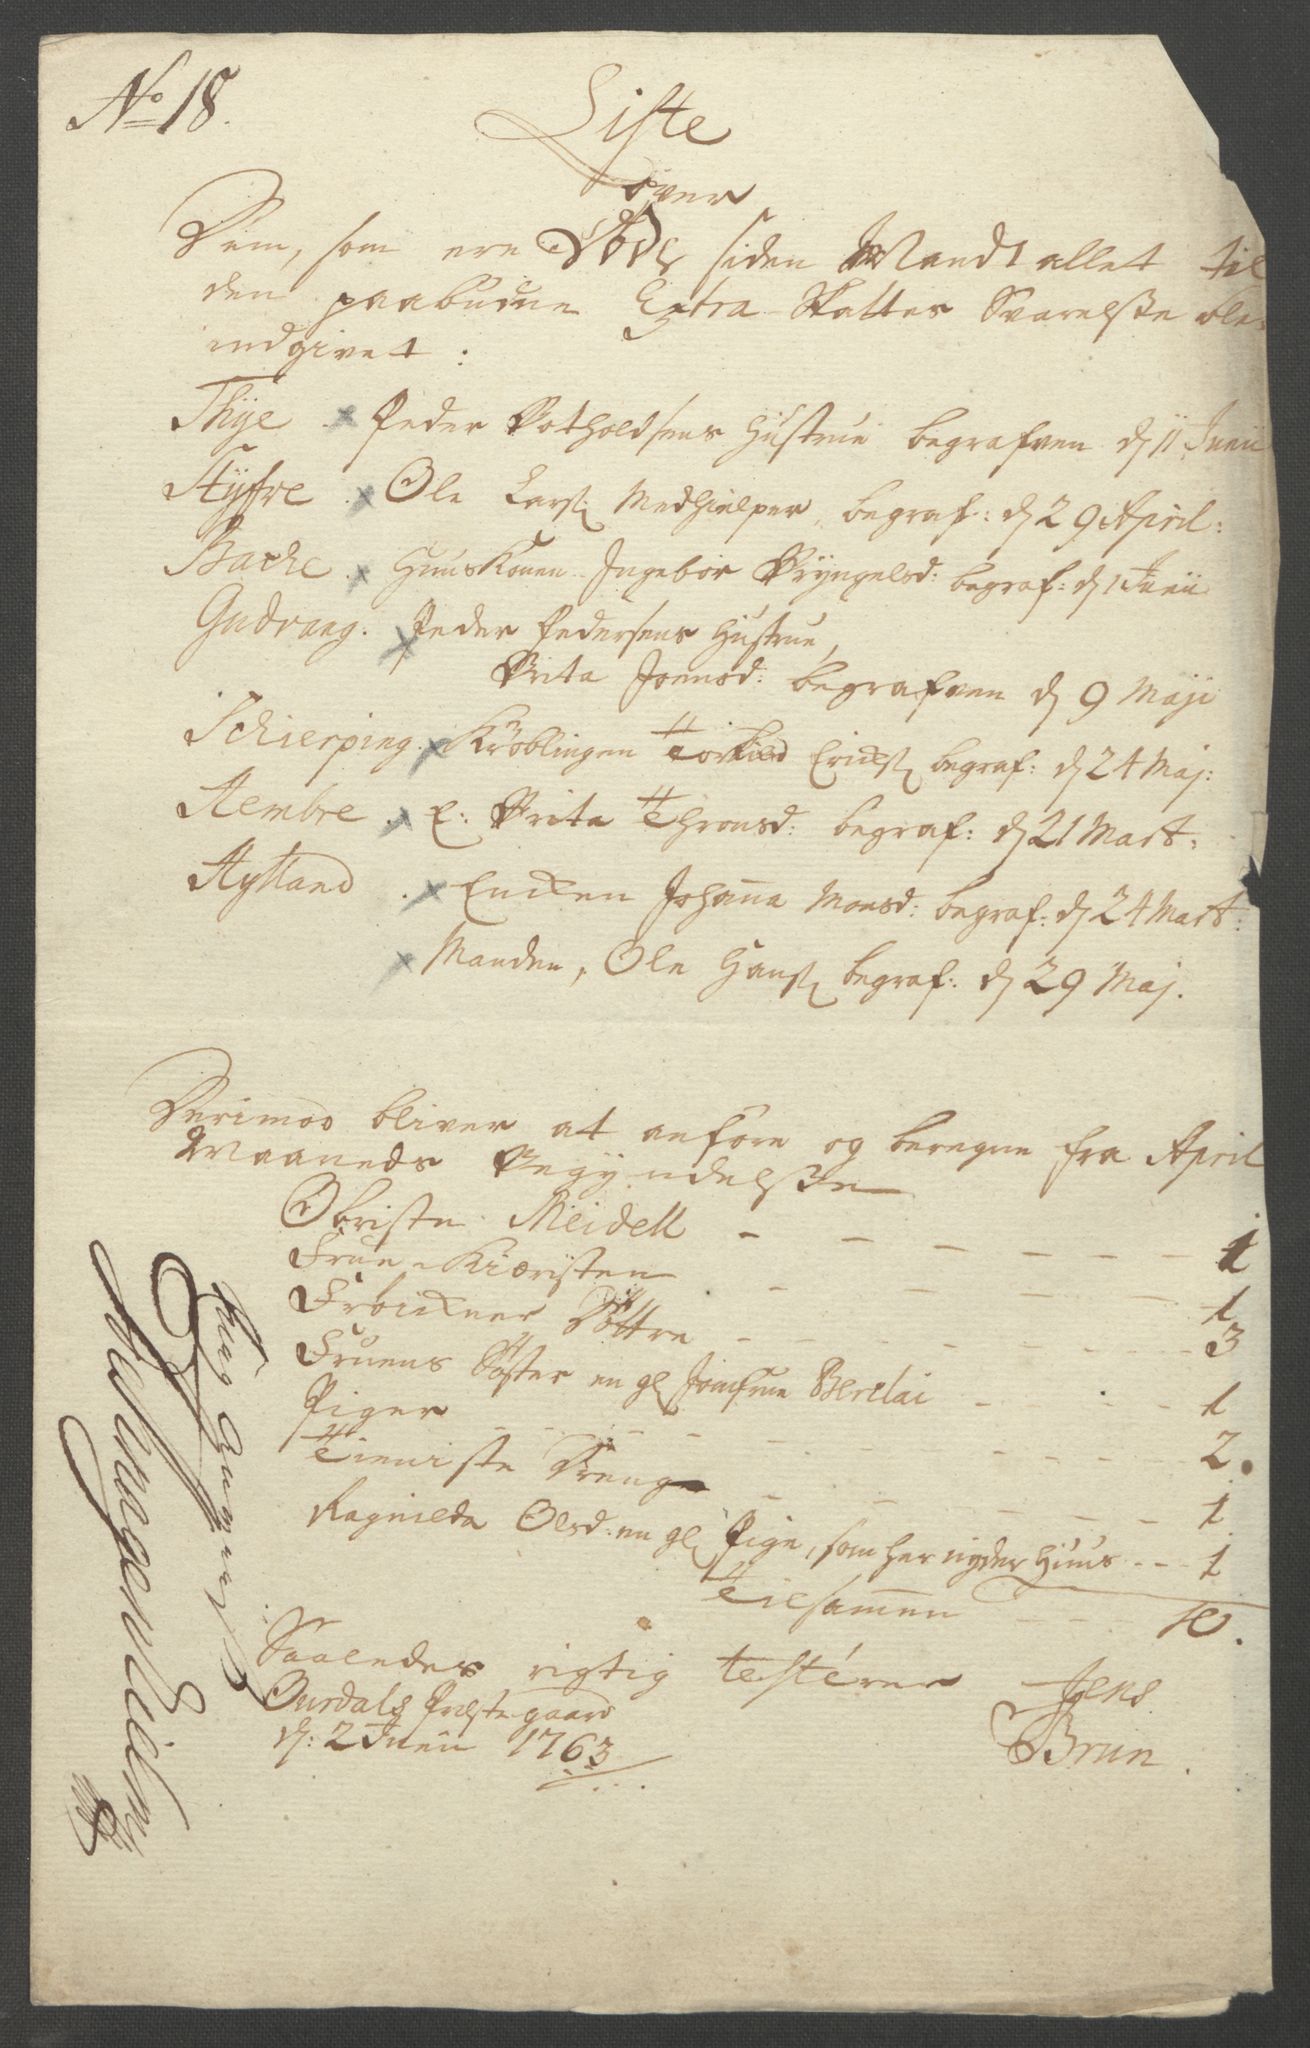 No 18.
Liste
over
Dem, som ere Døde siden Mandtallet til
den paabudne Extra Skattes Svarelsse ble
indgivet:
Thye . Peder Botholdsens Hustrue begrafven d 11 Junii
Styfre . Ole Lars: Medhielper, begraf: d 29 April:
Bache . Huuskonen Ingebor Bryngelsd: begraf: d 1 Junii
Gudvang . Peder Pedersens Hustrue,
Brita Joensd: begrafven d 9 Maji
Schierping . Krøblingen Torkild Ericks: begraf: d 24 Maj:
Stembre . E: Brita Thronsd: begraf: d 21 Mart:
Nyland . Encken Johanna Monsd: begraf: d 24 Mart:
Manden, Ole Hans: begraf: d 29 Maj.
Derimod bliver at anføre og beregne fra April
Maaneds Begyndelsse
Obriste Meidell - - - - - - 1
Frue Kiøristen - - - - 1
Frøickner Døttre - - - - - 3
Fruens Søster en gl Jomfrue Berclai - - - 1
Piger - - - - - - 2.
Tieniste Dreng - - - - - 1
Ragnilda Olsd: en gl Pige, som her nyder Huus - - 1
Tilsammen - - - 10.
Saaledes rigtig testérer Jens
Ourdals Præstegaard
d: 2 Junii 1763
Brun.